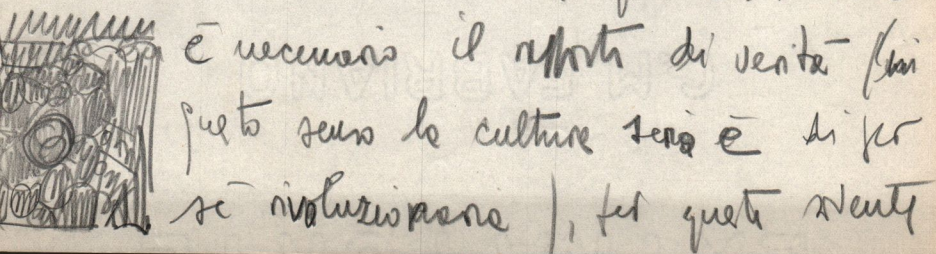 è necessario il rapporto di verità (in
questo senso la cultura seria è di per
sé rivoluzionaria), per questo